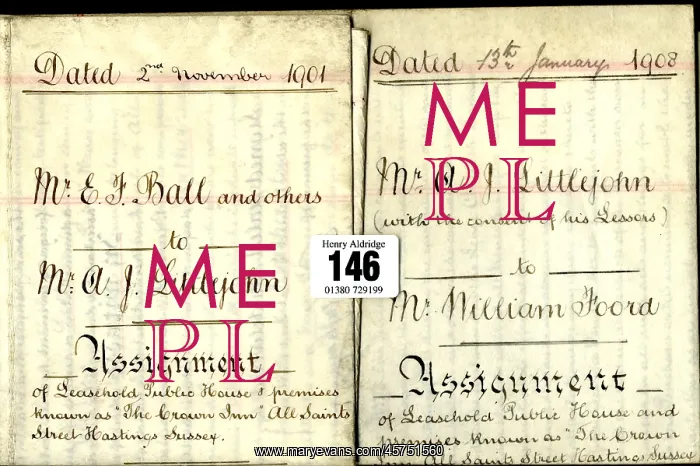 Dated 2nd November 1901
Mr. E. F. Ball and others
to
Mr. A. J. Littlejohn
Assignment
of Leasehold Public House & premises
known as "The Crown Inn" All Saints
Street Hastings Sussex.
Henry Aldridge
146
01380 729199
Dated 13th January 1908
Mr. A. J. Littlejohn
(with the consent of his Lessors)
to
Mr. William Foord
Assignment
of Leasehold Public House and
premises known as "The Crown
Inn All Saints Street Hastings Sussex
ME
PL
ME
PL
www.maryevans.com/45751560